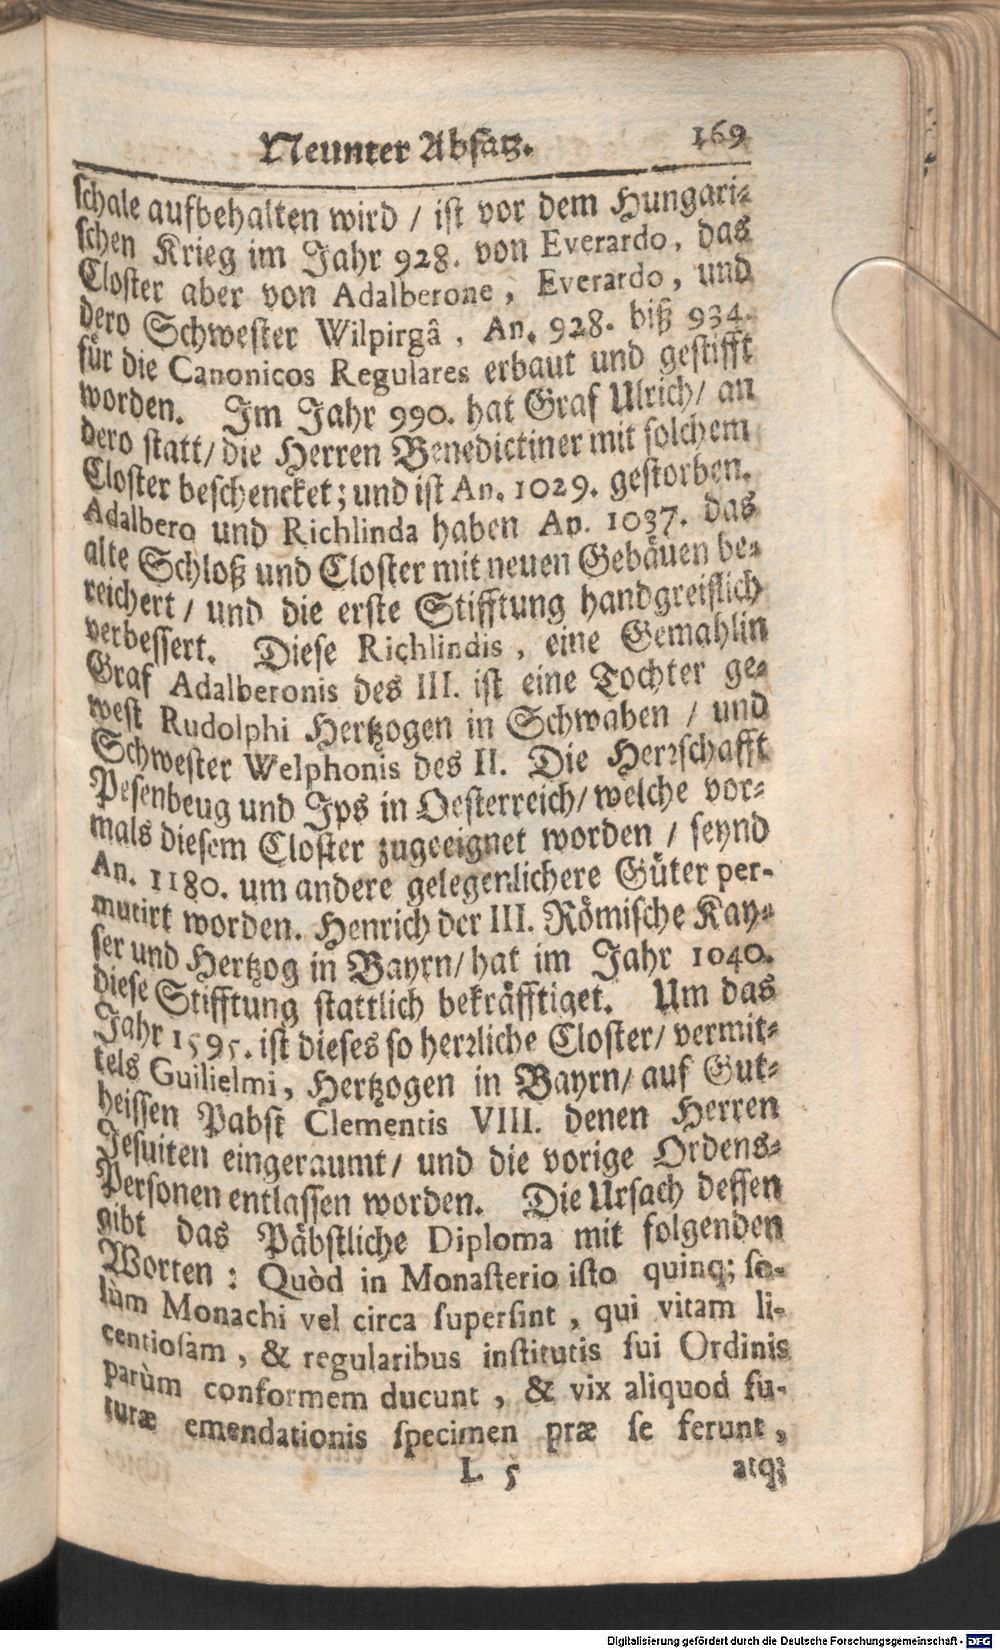 Neunter Absatz. 169
schale aufbehalten wird / ist vor dem Hungari-
schen Krieg im Jahr 928. von Everardo, das
Closter aber von Adalberone, Everardo, und
dero Schwester Wilpirgâ, An. 928. biß 934.
für die Canonicos Regulares erbaut und gestifft
worden. Im Jahr 990. hat Graf Ulrich / an
dero statt / die Herren Benedictiner mit solchem
Closter beschencket; und ist An. 1029. gestorben.
Adalbero und Richlinda haben An. 1037. das
alte Schloß und Closter mit neuen Gebäuen be-
reichert / und die erste Stifftung handgreiflich
verbessert. Diese Richlindis, eine Gemahlin
Graf Adalberonis des III. ist eine Tochter ge-
west Rudolphi Hertzogen in Schwaben / und
Schwester Welphonis des II. Die Herrschafft
Pesenbeug und Jps in Oesterreich / welche vor-
mals diesem Closter zugeeignet worden / seynd
An. 1180. um andere gelegenlichere Güter per-
mutirt worden. Henrich der III. Römische Kay-
ser und Hertzog in Bayrn / hat im Jahr 1040.
diese Stifftung stattlich bekräfftiget. Um das
Jahr 1595. ist dieses so herrliche Closter / vermit-
tels Guilielmi, Hertzogen in Bayrn / auf Gut-
heissen Pabst Clementis VIII. denen Herren
Jesuiten eingeraumt / und die vorige Ordens-
Personen entlassen worden. Die Ursach dessen
gibt das Päbstliche Diploma mit folgenden
Worten: Quòd in Monasterio isto quinq; so-
lùm Monachi vel circa supersint, qui vitam li-
centiosam, & regularibus institutis sui Ordinis
parùm conformem ducunt, & vix aliquod fu-
turæ emendationis specimen præ se ferunt,
L 5 atq;
Digitalisierung gefördert durch die Deutsche Forschungsgemeinschaft - DFG